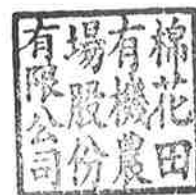 棉花田
有機農
場股份
有限公司